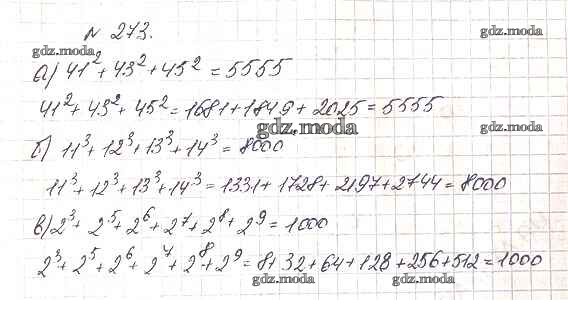 № 273.
gdz.moda
gdz.moda
а) 41² + 43² + 45² = 5555
41² + 43² + 45² = 1681 + 1849 + 2025 = 5555
gdz.moda
б) 11³ + 12³ + 13³ + 14³ = 8000
11³ + 12³ + 13³ + 14³ = 1331 + 1728 + 2197 + 2744 = 8000
в) 2³ + 2⁵ + 2⁶ + 2⁷ + 2⁸ + 2⁹ = 1000
2³ + 2⁵ + 2⁶ + 2⁷ + 2⁸ + 2⁹ = 8 + 32 + 64 + 128 + 256 + 512 = 1000
gdz.moda
gdz.moda